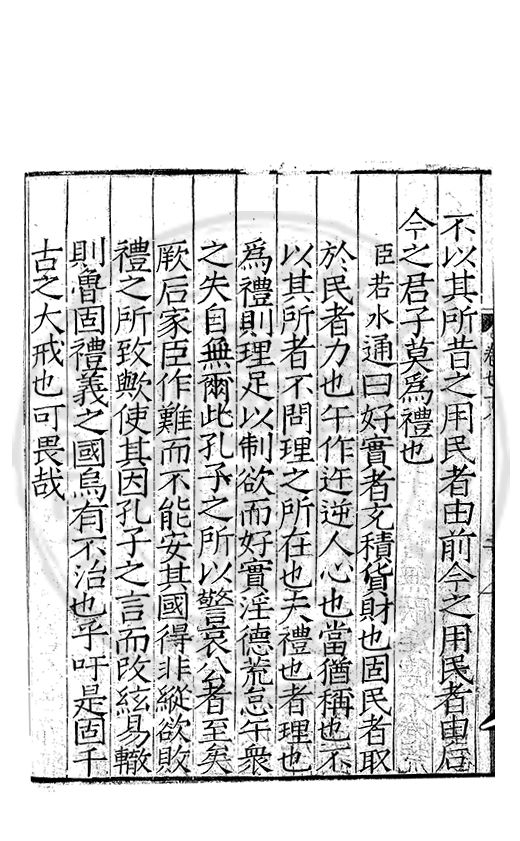 不以其所昔之用民者由前今之用民者由后
今之君子莫爲禮也
臣若水通曰好實者充積貨財也固民者取
於民者力也午作迕逆人心也當猶稱也不
以其所者不問理之所在也夫禮也者理也
爲禮則理足以制欲而好實淫德荒怠午衆
之失自無爾此孔子之所以警哀公者至矣
厥后家臣作難而不能安其國得非縱欲敗
禮之所致歟使其因孔子之言而改絃易轍
則魯固禮義之國烏有不治也乎吁是固千
古之大戒也可畏哉